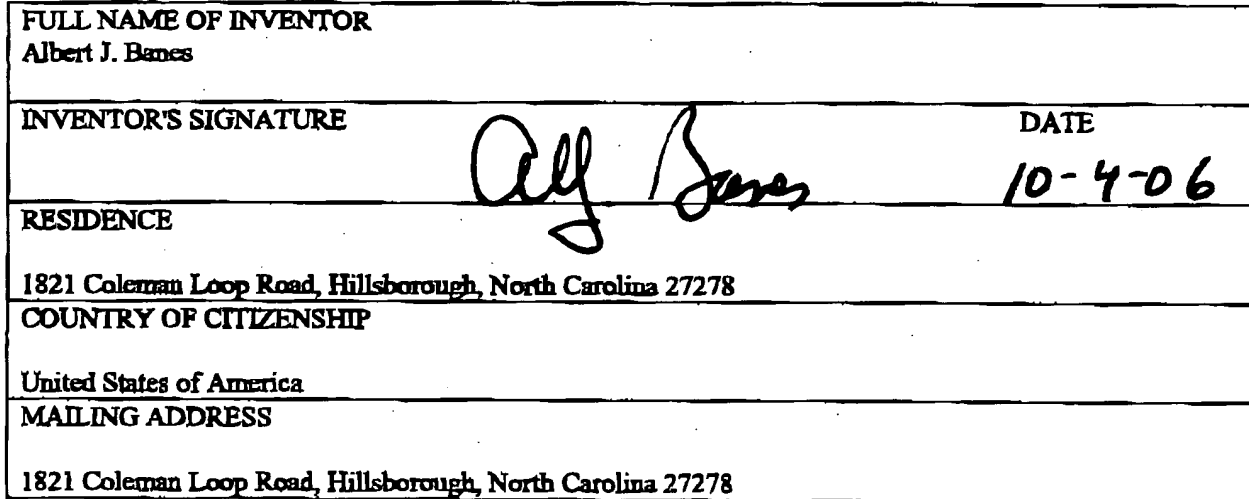 FULL NAME OF INVENTOR
Albert J. Banes
INVENTOR'S SIGNATURE
DATE
Banes
10-4-06
RESIDENCE
1821 Coleman Loop Road, Hillsborough, North Carolina 27278
COUNTRY OF CITIZENSHIP
United States of America
MAILING ADDRESS
1821 Coleman Loop Road, Hillsborough, North Carolina 27278